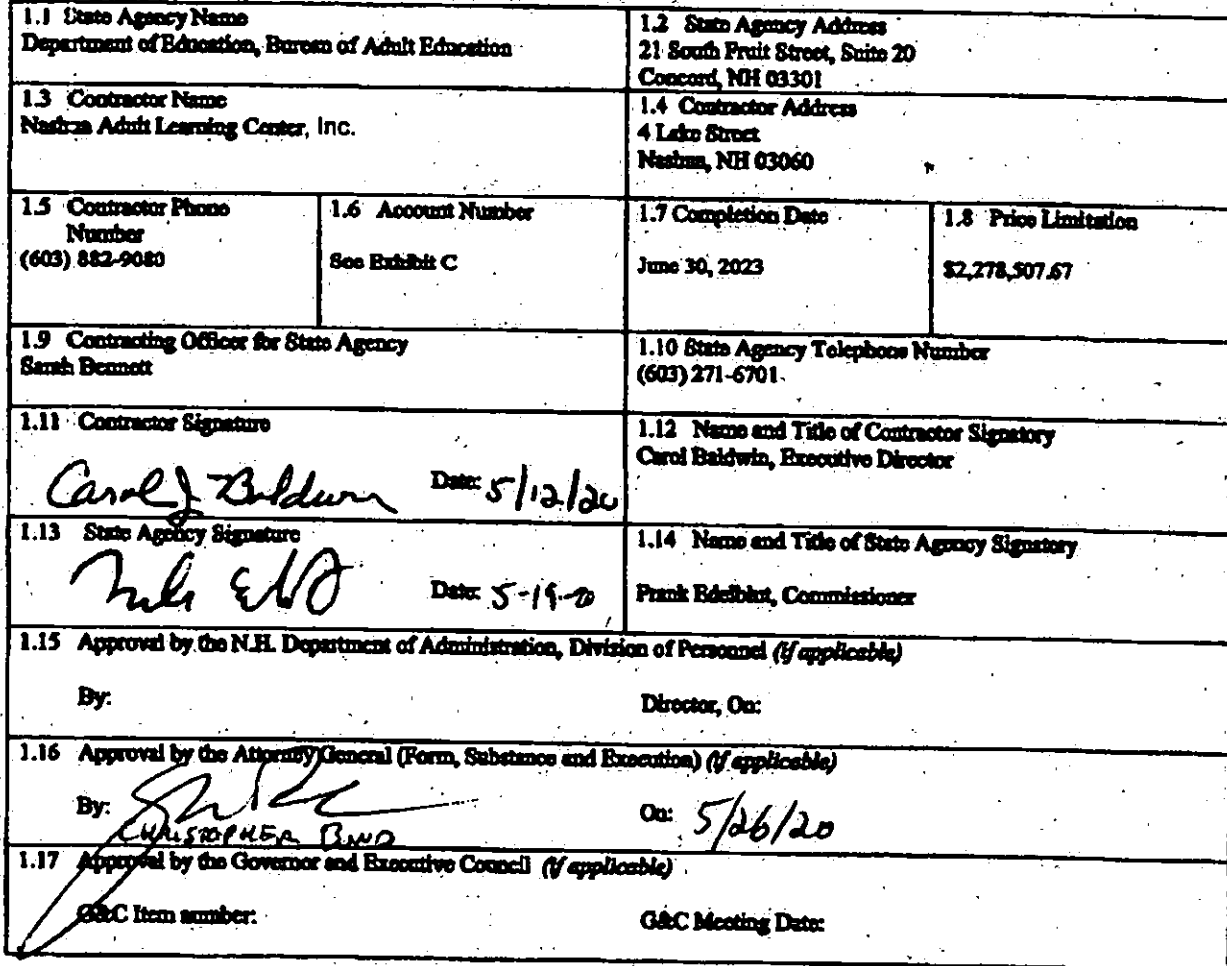 1.1 State Agency Name
Department of Education, Bureau of Adult Education
1.2 State Agency Address
21 South Fruit Street, Suite 20
Concord, NH 03301
1.3 Contractor Name
Nashua Adult Learning Center, Inc.
1.4 Contractor Address
4 Lake Street
Nashua, NH 03060
1.5 Contractor Phone
Number
(603) 882-9080
1.6 Account Number
See Exhibit C
1.7 Completion Date
June 30, 2023
1.8 Price Limitation
$2,278,507.67
1.9 Contracting Officer for State Agency
Sarah Bennett
1.10 State Agency Telephone Number
(603) 271-6701
1.11 Contractor Signature
Carol J Baldwin Date: 5/12/20
1.12 Name and Title of Contractor Signatory
Carol Baldwin, Executive Director
1.13 State Agency Signature
Date: 5-19-20
1.14 Name and Title of State Agency Signatory
Frank Edelblut, Commissioner
1.15 Approval by the N.H. Department of Administration, Division of Personnel (if applicable)
By: Director, On:
1.16 Approval by the Attorney General (Form, Substance and Execution) (if applicable)
By: On: 5/26/20
CHRISTOPHER BOND
1.17 Approval by the Governor and Executive Council (if applicable)
G&C Item number: G&C Meeting Date: